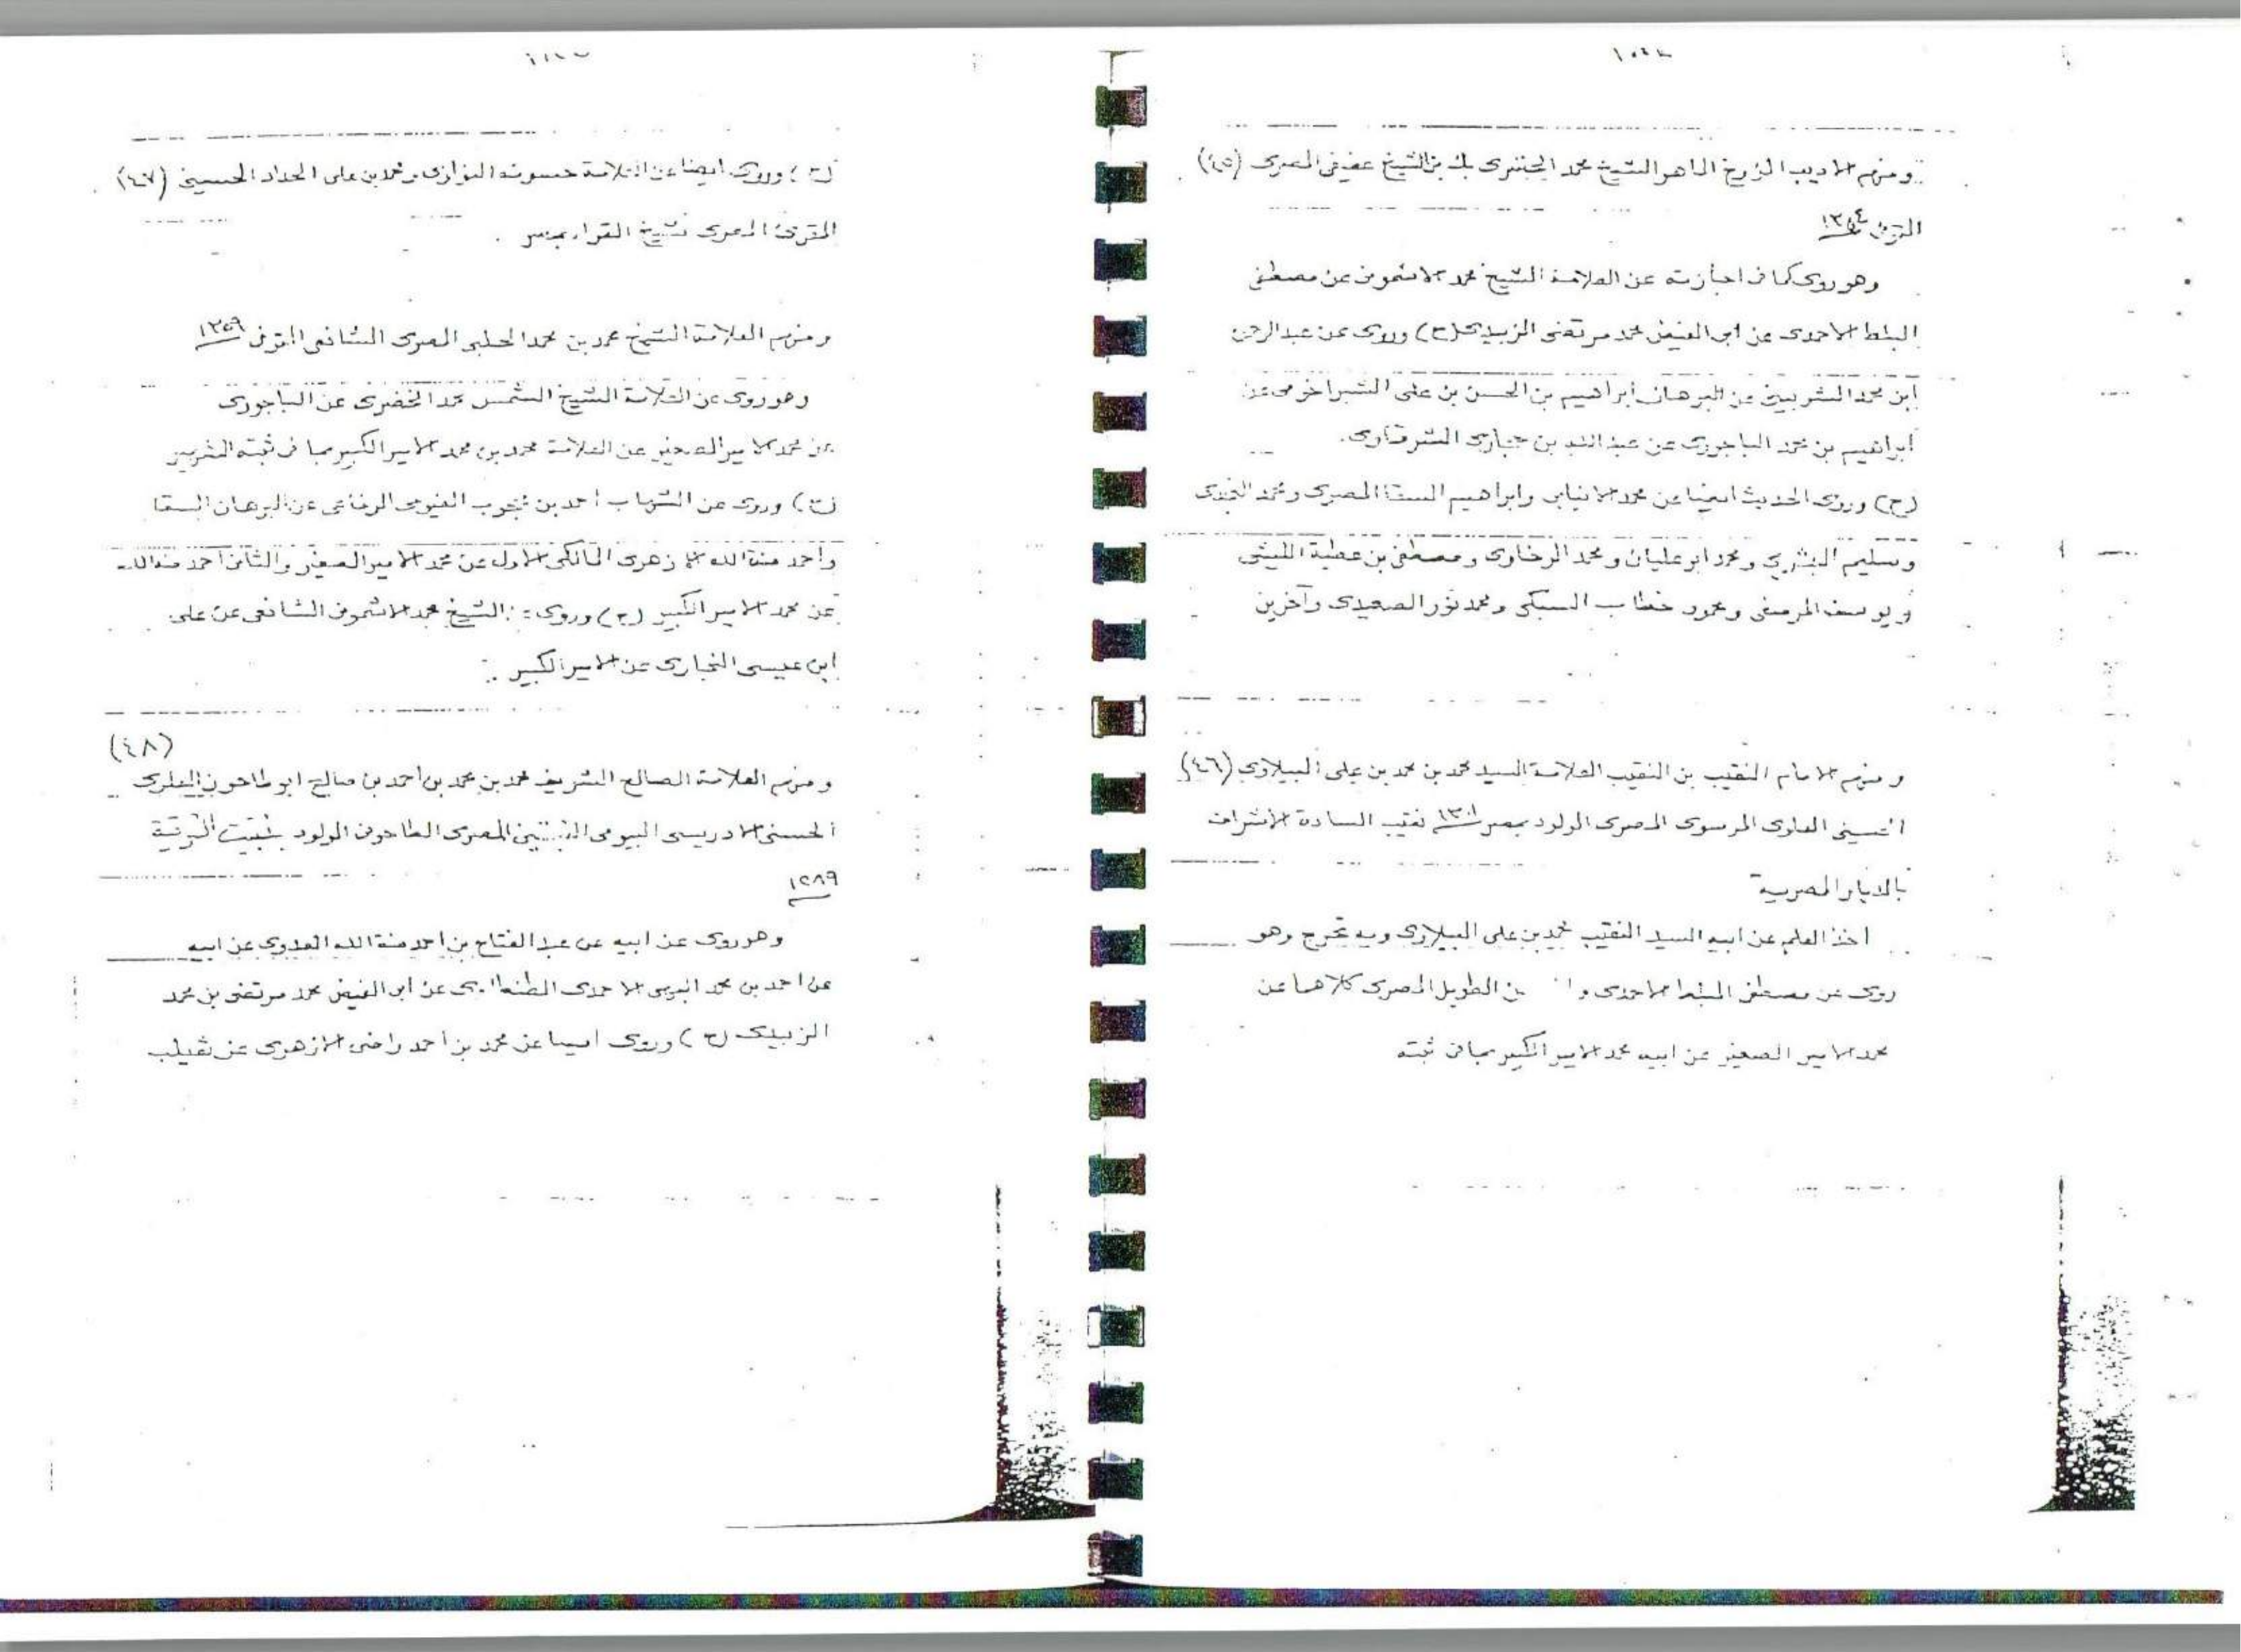 ومنهم الاديب المؤرخ الماهر الشيخ محمد الخضرى بك بن الشيخ عفيفى المصرى (٤٥)
المتوفى
وهو روى كما فى اجازته عن العلامة الشيخ محمد الاشمونى عن مصطفى
المبلط الاحمدى عن ابى الفيض محمد مرتضى الزبيدى (ح) وروى عن عبد الرحمن
ابن محمد الشربينى عن البرهان ابراهيم بن الحسن بن على الشبراخومى عن
ابراهيم بن محمد الباجورى عن عبد الله بن حجازى الشرقاوى.
(ح) وروى الحديث ايضا عن محمد الانبابى وابراهيم السقا المصرى ومحمد
وسليم البشرى ومحمد ابو عليان ومحمد الرخاوى ومصطفى بن عطية الليثى
ويوسف المرصفى ومحمود خطاب السبكى ومحمد نور الصعيدى وآخرين
ومنهم الامام النقيب بن النقيب العلامة السيد محمد بن محمد بن على الببلاوى (٤٦)
الحسينى العلوى الموسوى المصرى المولود بمصر ١٣٠١ نقيب السادة الاشراف
بالديار المصرية
اخذ العلم عن ابيه السيد النقيب محمد بن على الببلاوى وبه تخرج وهو
روى عن مصطفى المبلط الاحمدى بن الطويل المصرى كلاهما عن
محمد الامير الصغير عن ابيه محمد الامير الكبير بما فى ثبته
(ح) وروى ايضا عن العلامة حسونه النواوى ومحمد بن على الحداد الحسينى (٤٧)
المقرئ المصرى شيخ القراء بمصر .
ومنهم العلامة الشيخ محمد بن محمد الحلبى المصرى الشافعى المتوفى ١٣٥٩
وهو روى عن العلامة الشيخ الشمس محمد الخضرى عن الباجورى
عن محمد الامير الصغير عن العلامة محمد بن محمد الامير الكبير بما فى ثبته الشهير
(ح) وروى عن الشهاب احمد بن محجوب الفيومى الرفاعى عن البرهان السقا
واحمد منة الله الازهرى المالكى الاول عن محمد الامير الصغير والثانى احمد منة الله
عن محمد الامير الكبير (ح) وروى عن الشيخ محمد الاشمونى الشافعى عن على
ابن عيسى النجارى عن الامير الكبير .
(٤٨)
ومنهم العلامة الصالح الشريف محمد بن محمد بن احمد بن صالح ابو طاحون
الحسنى الادريسى البيومى المصرى الطاحونى المولود
١٢٨٩
وهو روى عن ابيه عن عبد الفتاح بن احمد منة الله العدوى عن ابيه
عن احمد بن محمد البهى الاحمدى عن ابى الفيض محمد مرتضى بن محمد
الزبيدى (ح) وروى ايضا عن محمد بن احمد راضى الازهرى عن ثعيلب